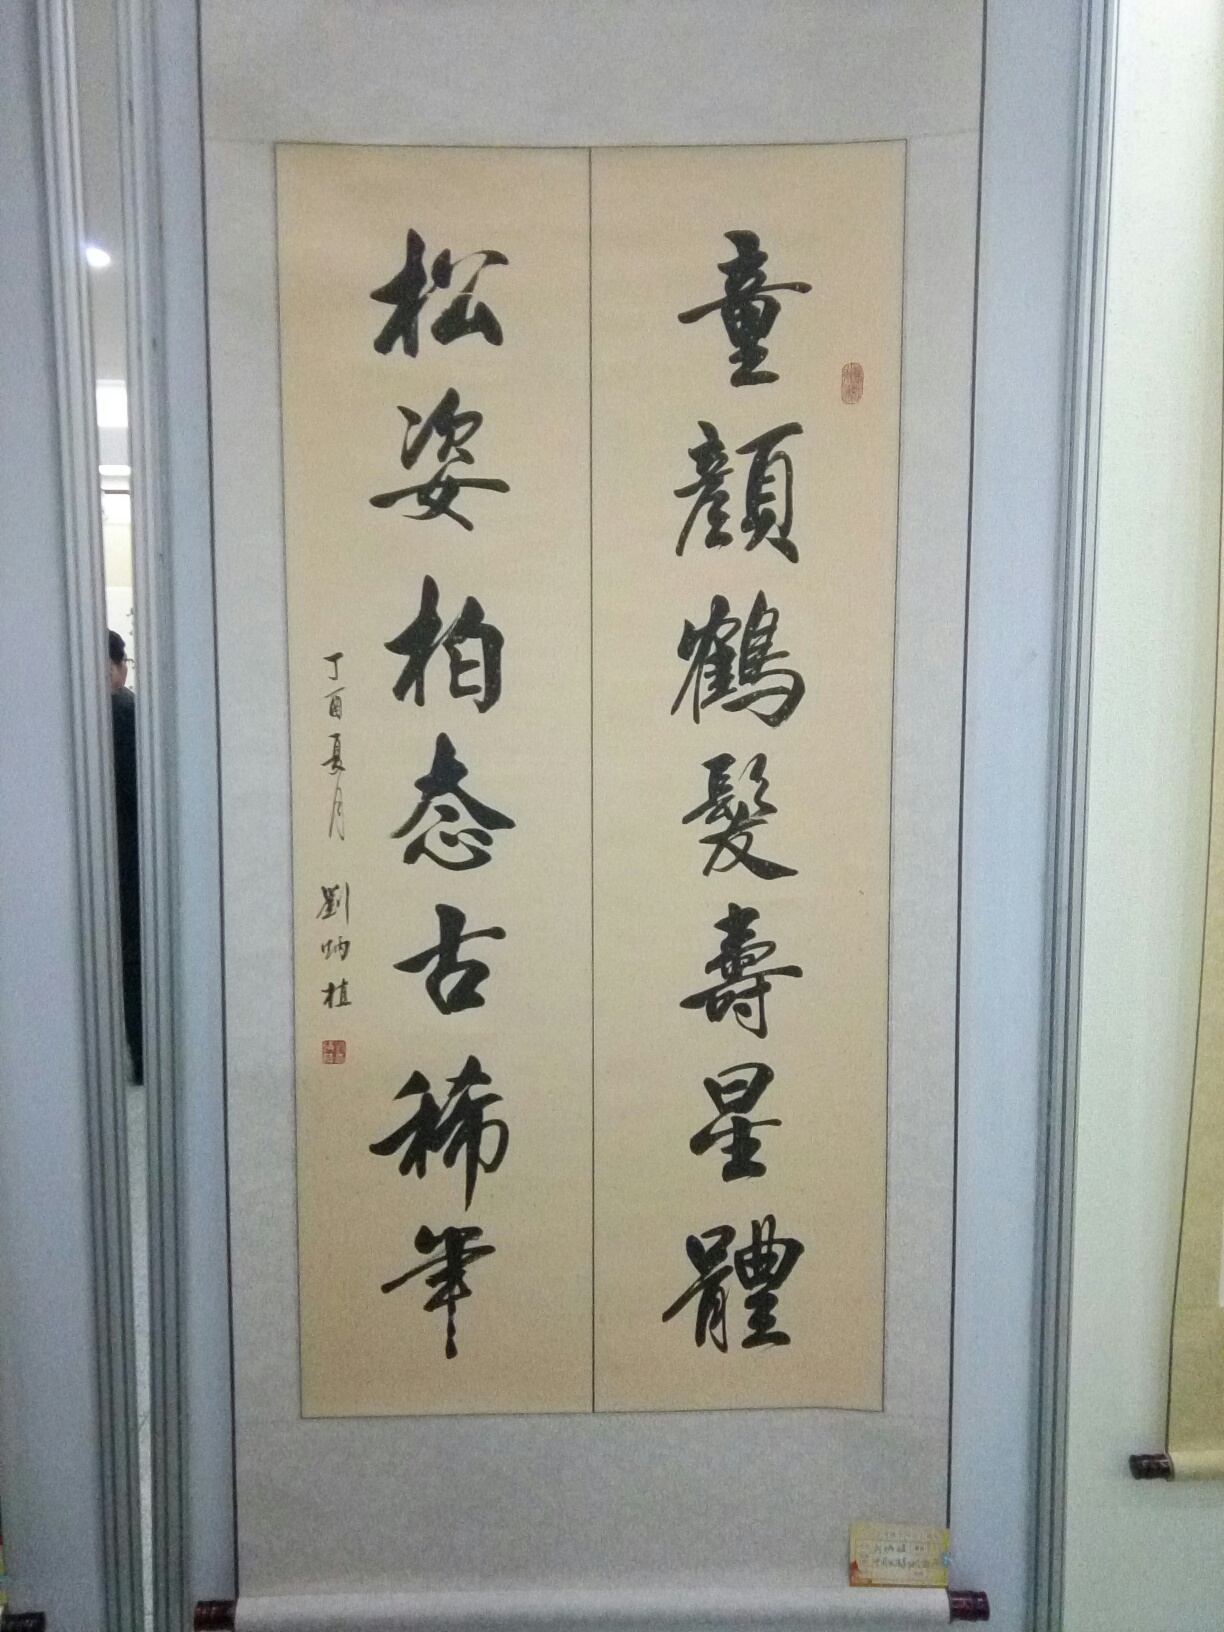 童顏鶴髮壽星體
松姿柏态古稀年
丁酉夏月 劉炳植